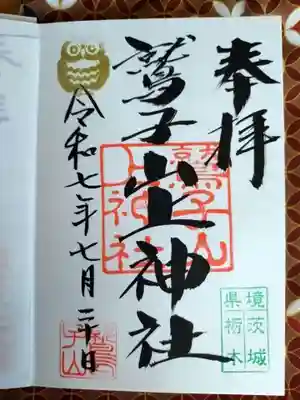 奉拝
鷲子山上神社
鷲子山
上神社
令和七年七月二十日
鷲子山
境茨城
県栃木